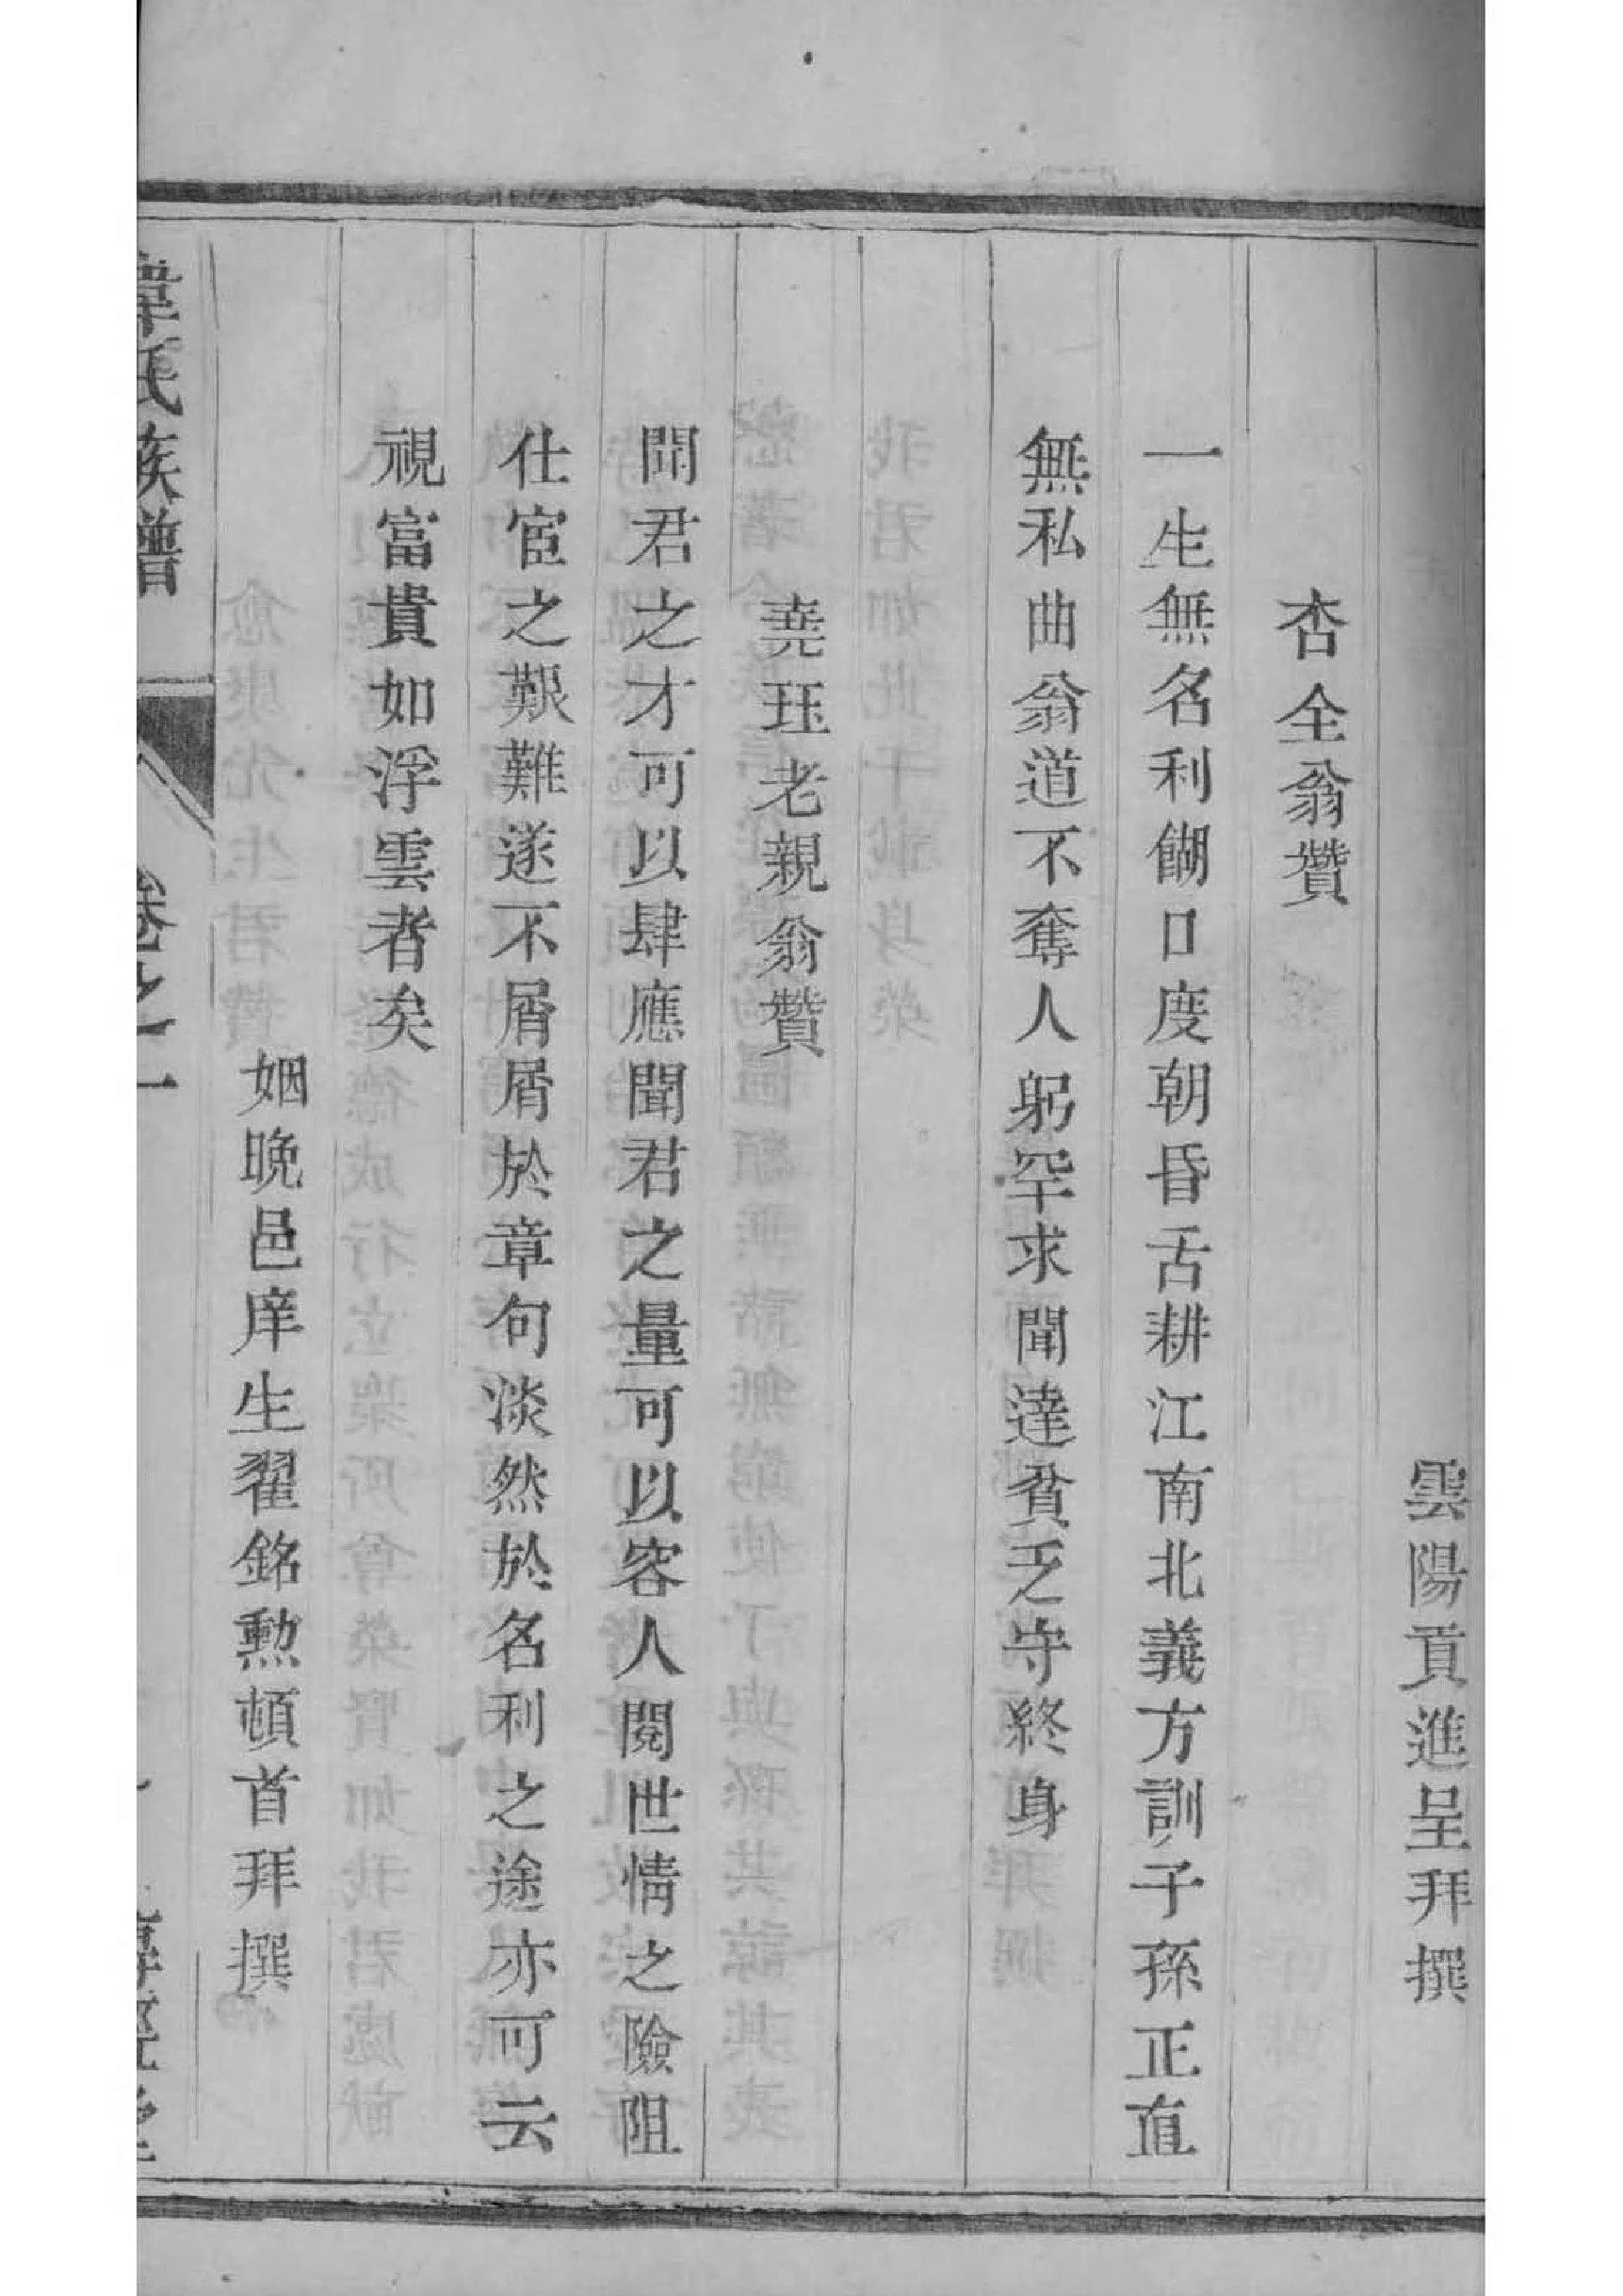 雲陽貢進呈拜撰
杏全翁贊
一生無名利餬口度朝昏舌耕江南北義方訓子孫正直
無私曲翁道不奪人躬罕求聞達貧乏守終身
堯珏老親翁贊
聞君之才可以肆應聞君之量可以容人閱世情之險阻
仕宦之艱難遂不屑屑於章句淡然於名利之途亦可云
視富貴如浮雲者矣
姻晚邑庠生翟銘勲頓首拜撰
韋氏族譜 卷之一